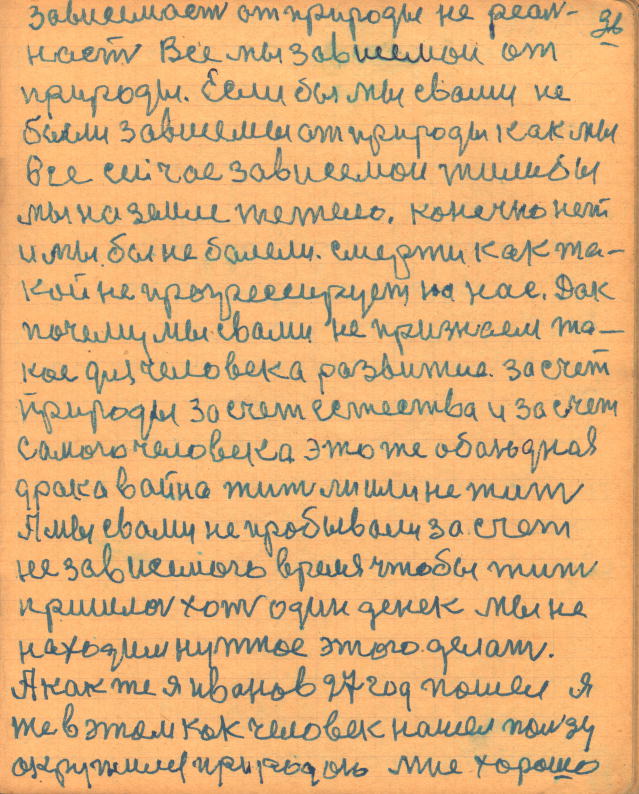 зависемаст от природы не реал-
36
наст Все мы зависемои от
природы. Если бы мы свами не
были зависемы от природы как мы
все сийчас зависемои жили бы
мы на земле тежело. конечно нет
и мы бы не болели. смерти как та-
кой не прогрессирует на нас. Дак
почему мы свами не признаем та-
кое для человека развитие. за счет
природы за счет естества и за счет
самого человека это же обаюдная
драка вайна жит ли или не жит
А мы свами не пробывали за счет
не зависемого время чтобы жит
пришлос хот один денек мы не
находим нужное этого делат.
А как же я иванов 37 год пошел я
же в этом как человек нашел ползу
окружился природою мне хорошо